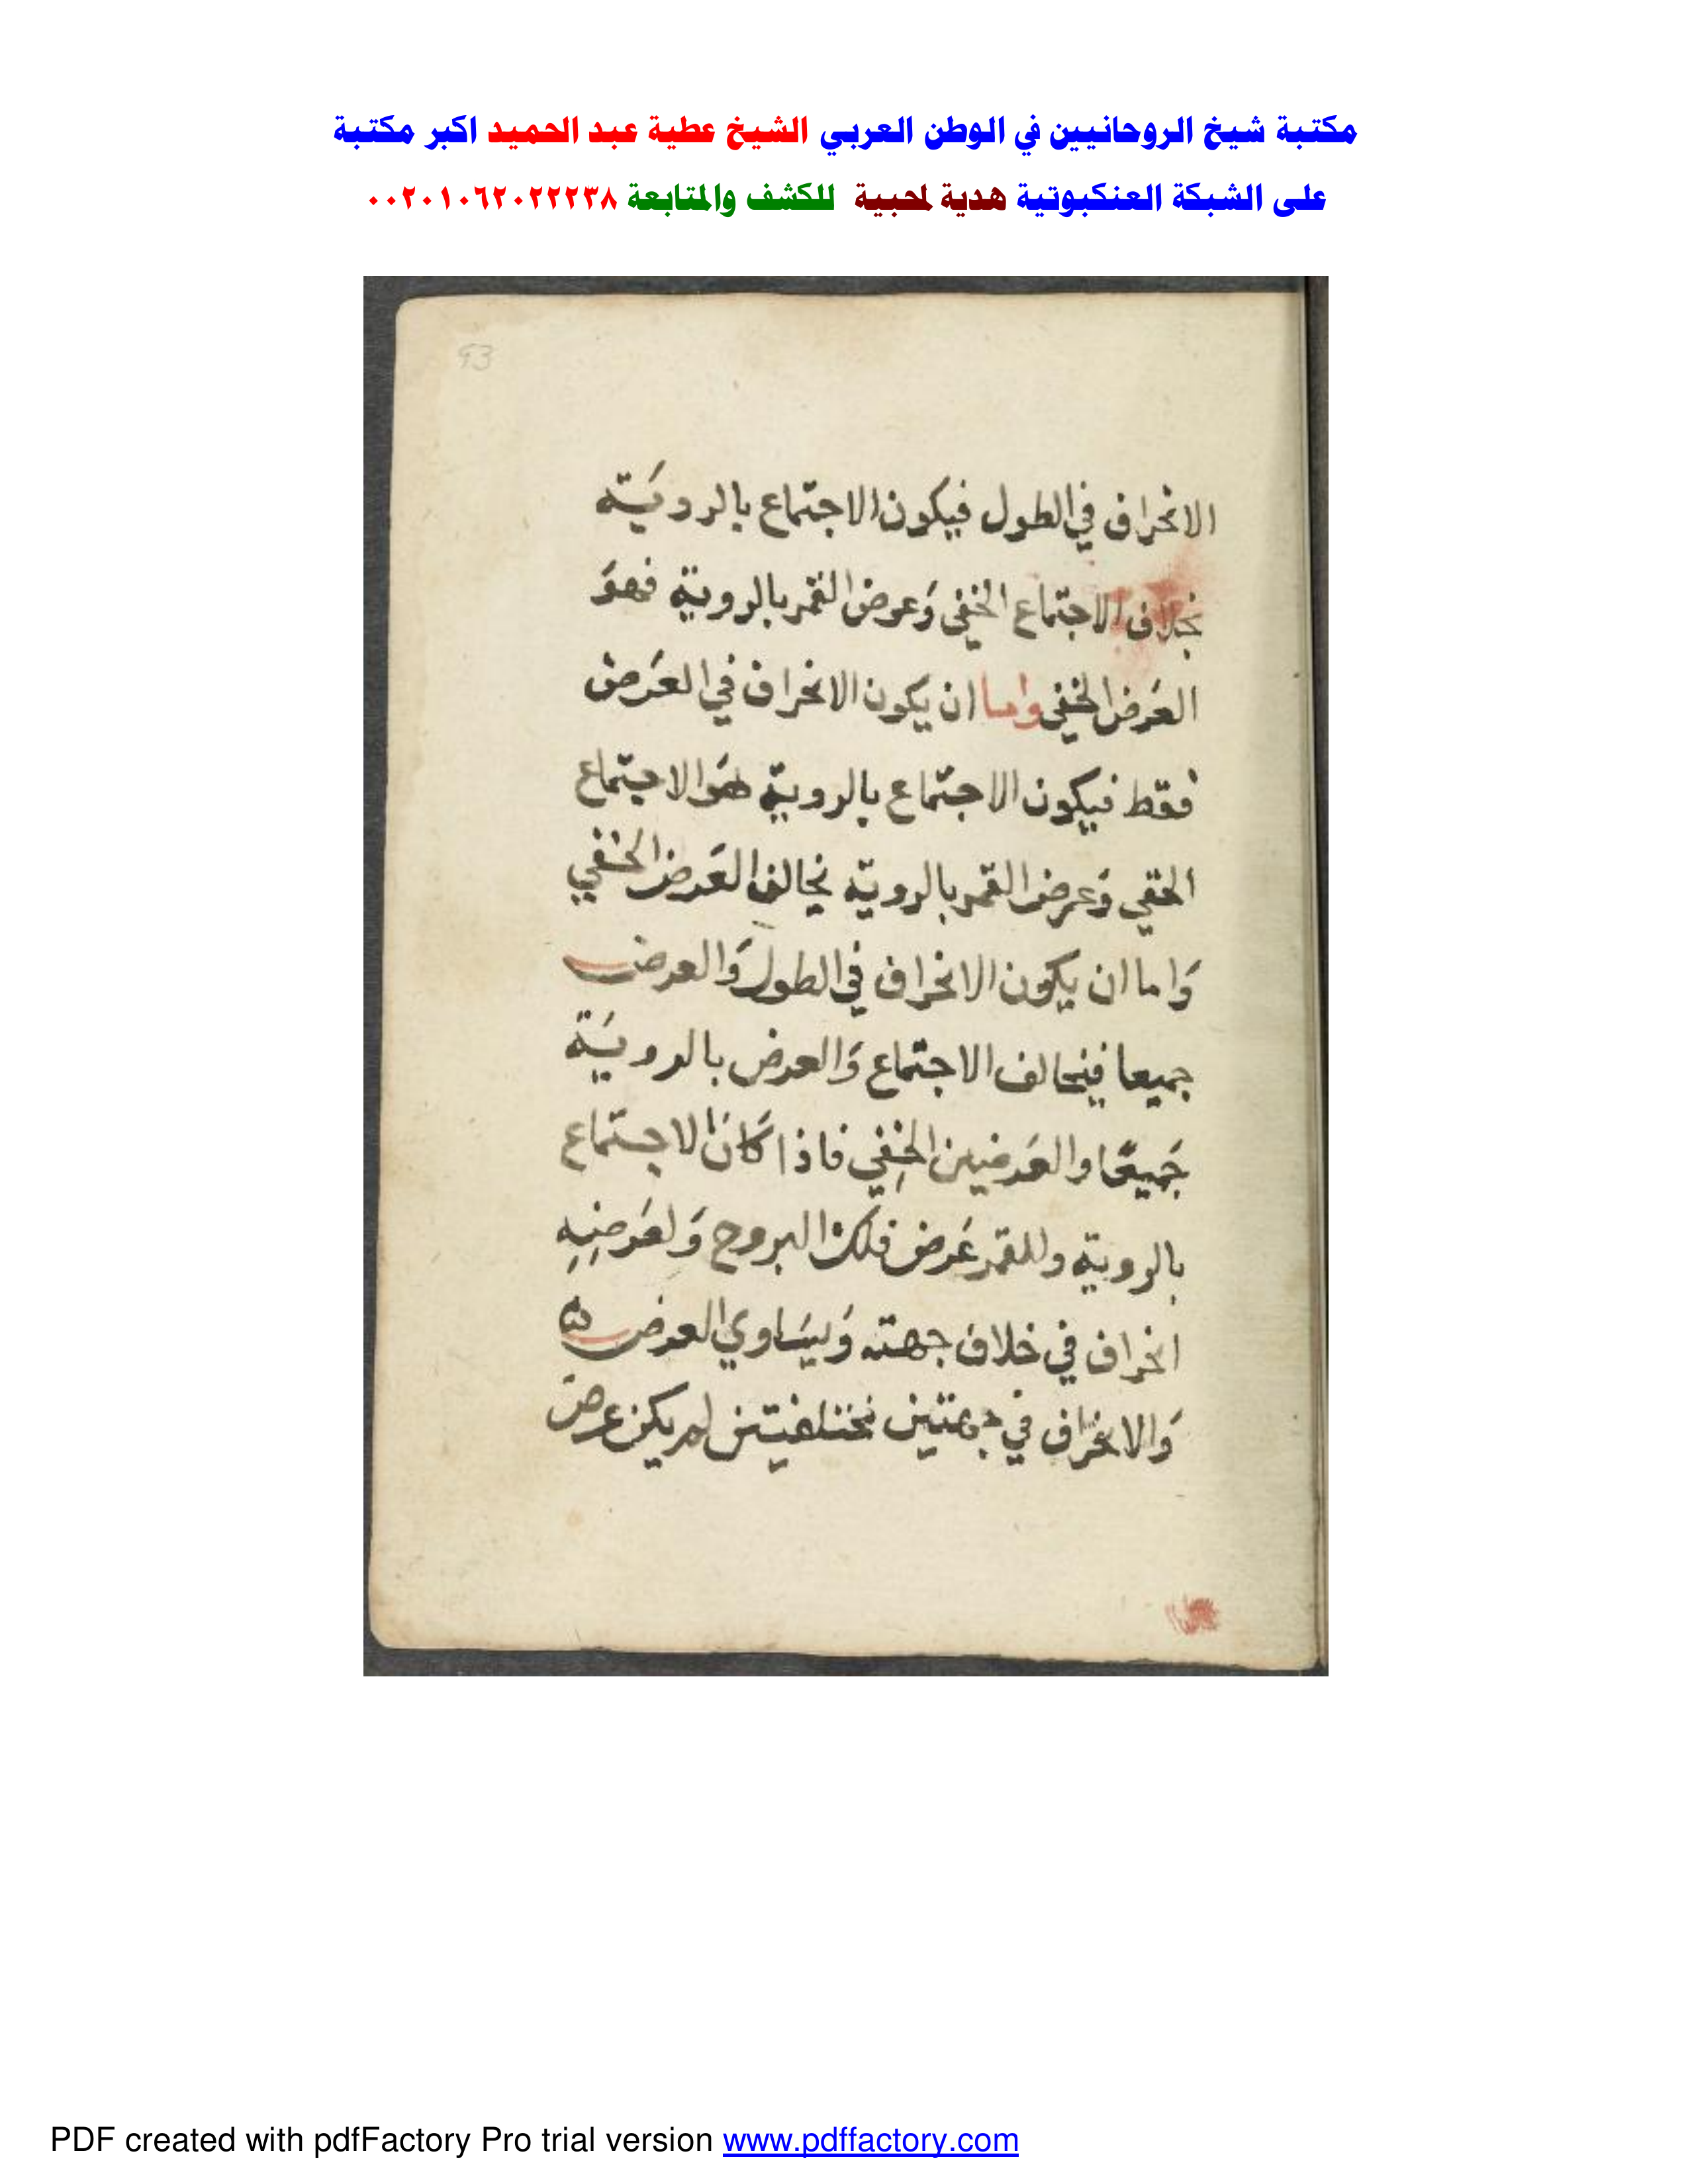 مكتبة شيخ الروحانيين في الوطن العربي الشيخ عطية عبد الحميد اكبر مكتبة
على الشبكة العنكبوتية هدية لمحبية للكشف والمتابعة ٠٠٢٠١٠٦٢٠٢٢٢٣٨
93
الانحراف في الطول فيكون الاجتماع بالرويَته
بخلاف الاجتماع الخفي وَعرض القمر بالروية فهوَ
العَرض الخفي واما ان يكون الانحراف في العَرض
فقط فيكون الاجتماع بالروية هوَ الاجتماع
الحقي وَعرض القمر بالروية يخالف العَرض الخفي
وَاما ان يكون الانحراف في الطول وَالعرض
جميعا فيخالف الاجتماع وَالعرض بالرويَة
جَميعًا والعَرضين الخفي فاذا كَانَ الاجتماع
بالروية وللقمر عَرض فلك البروج وَلعَرضِهِ
انحراف في خلاف جهته وَيسَاوي العرض
وَالانحراف في جهتين مختلفيتن لم يكن عرض
PDF created with pdfFactory Pro trial version www.pdffactory.com